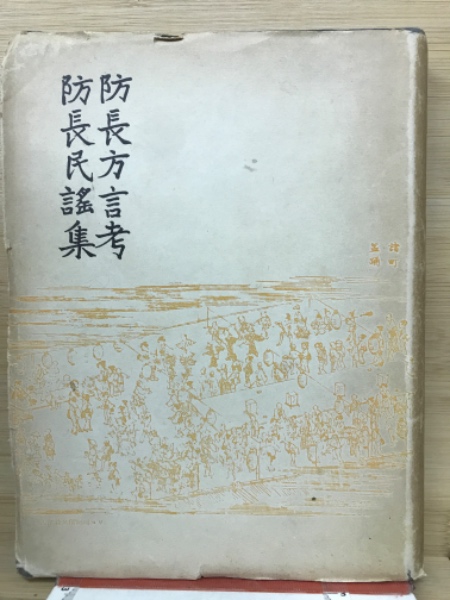 防長方言考
防長民謠集